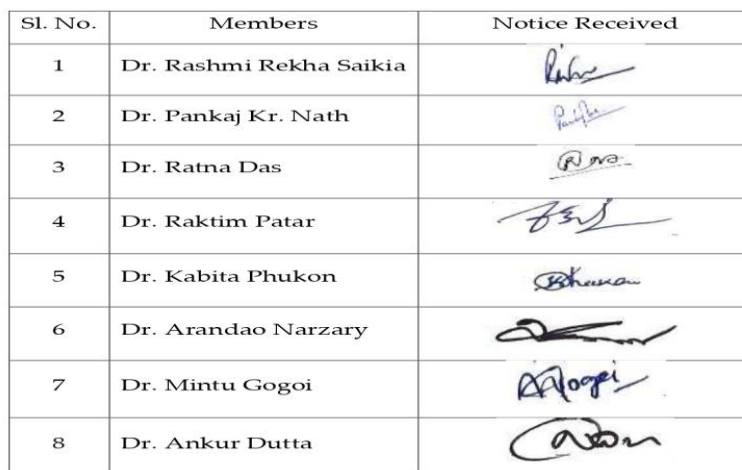 Sl. No. Members Notice Received
1 Dr. Rashmi Rekha Saikia
2 Dr. Pankaj Kr. Nath
3 Dr. Ratna Das
4 Dr. Raktim Patar
5 Dr. Kabita Phukon
6 Dr. Arandao Narzary
7 Dr. Mintu Gogoi
8 Dr. Ankur Dutta